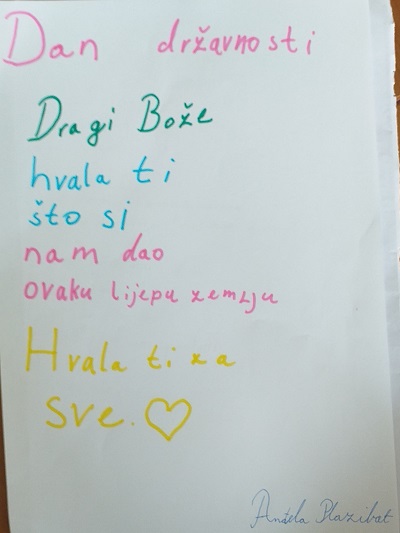 Dan državnosti
Dragi Bože
hvala ti
što si
nam dao
ovaku lijepu zemlju
Hvala ti za
sve. ♡
Anđela Plazibat